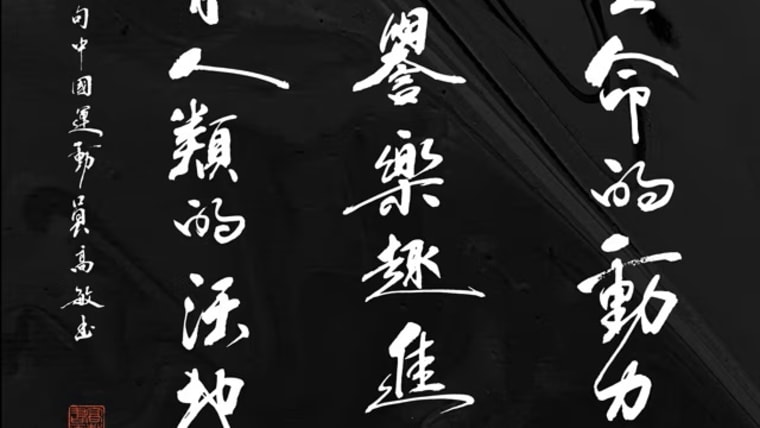 命的動力
譽樂趣進
人類的活地
句中國運動員高敏书